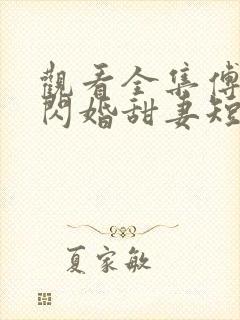 觀看全集傅
閃婚甜妻短
夏家敏